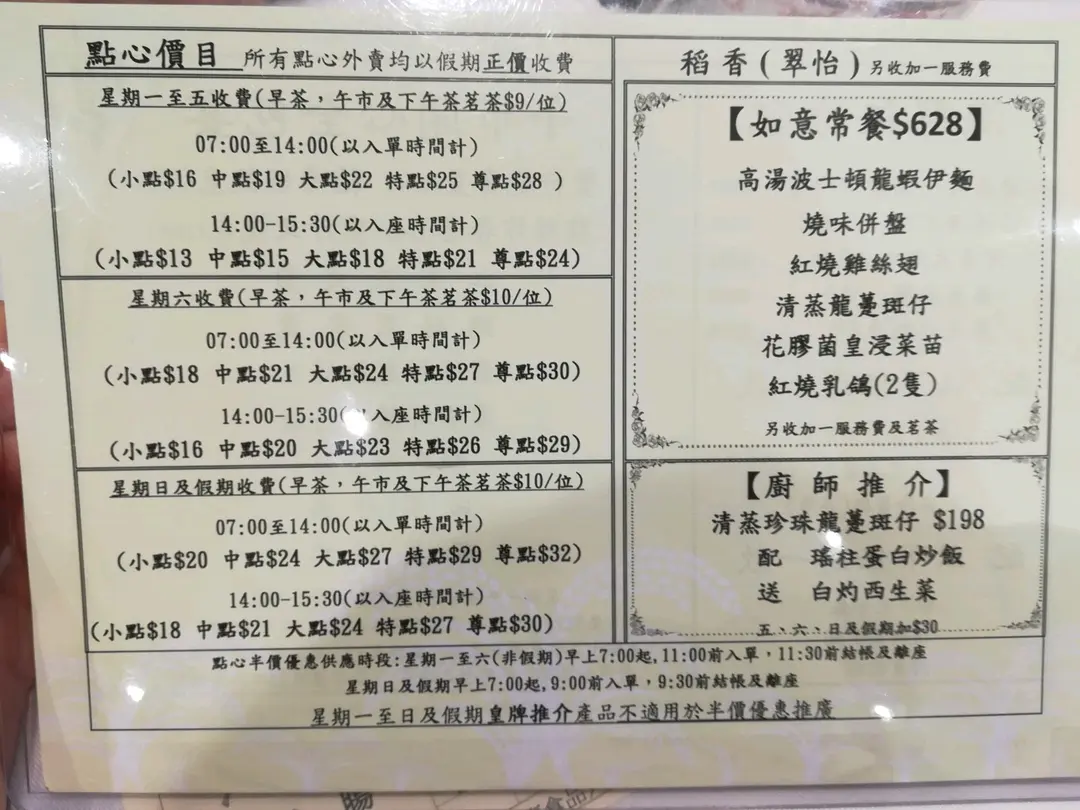 點心價目 所有點心外賣均以假期正價收費
星期一至五收費(早茶，午市及下午茶茗茶$9/位)
07:00至14:00(以入單時間計)
(小點$16 中點$19 大點$22 特點$25 尊點$28 )
14:00-15:30(以入座時間計)
(小點$13 中點$15 大點$18 特點$21 尊點$24)
星期六收費(早茶，午市及下午茶茗茶$10/位)
07:00至14:00(以入單時間計)
(小點$18 中點$21 大點$24 特點$27 尊點$30)
14:00-15:30( 入座時間計)
(小點$16 中點$20 大點$23 特點$26 尊點$29)
星期日及假期收費(早茶，午市及下午茶茗茶$10/位)
07:00至14:00(以入單時間計)
(小點$20 中點$24 大點$27 特點$29 尊點$32)
14:00-15:30(以入座時間計)
(小點$18 中點$21 大點$24 特點$27 尊點$30)
稻香(翠怡)另收加一服務費
【如意常餐$628】
高湯波士頓龍蝦伊麵
燒味併盤
紅燒雞絲翅
清蒸龍躉斑仔
花膠菌皇浸菜苗
紅燒乳鴿(2隻)
另收加一服務費及茗茶
【廚師推介】
清蒸珍珠龍躉斑仔 $198
配 瑤柱蛋白炒飯
送 白灼西生菜
五、六、日及假期加$30
點心半價優惠供應時段:星期一至六(非假期)早上7:00起,11:00前入單，11:30前結帳及離座
星期日及假期早上7:00起,9:00前入單，9:30前結帳及離座
星期一至日及假期皇牌推介產品不適用於半價優惠推廣